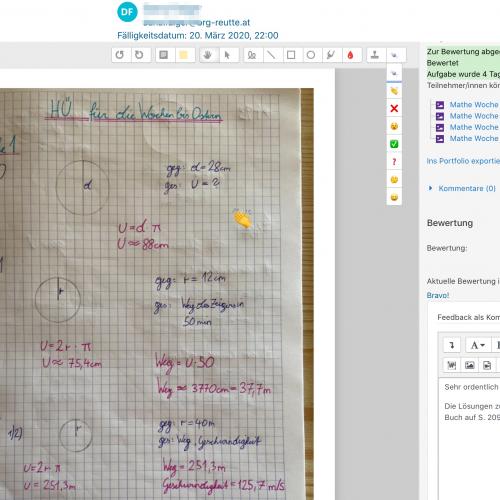 DF
@brg-reutte.at
Fälligkeitsdatum: 20. März 2020, 22:00
Zur Bewertung abge
Bewertet
Aufgabe wurde 4 Tag
Teilnehmer/innen kön
Mathe Woche
Mathe Woche
Mathe Woche
Mathe Woche
Ins Portfolio exportie
Kommentare (0)
Bewertung
Bewertung:
Aktuelle Bewertung i
Bravo!
Feedback als Kom
Sehr ordentlich
Die Lösungen zu
Buch auf S. 209
HÜ für die Wochen bis Ostern
1
d
geg: d=28cm
ges: U=?
U=d·π
U≈88cm
r
geg: r=12cm
ges: Weg des Zeigers in
50 min
U=2r·π
U≈75,4cm
Weg=U·50
Weg≈3770cm=37,7m
1/2)
r
geg: r=40m
ges: Weg, Geschwindigkeit
U=2rπ
U=251,3m
Weg=251,3m
Geschwindigkeit=125,7 m/s